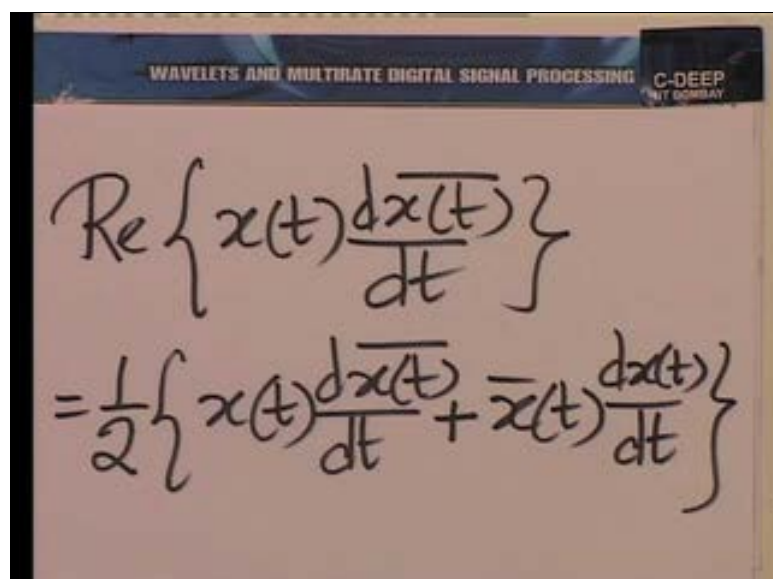 WAVELETS AND MULTIRATE DIGITAL SIGNAL PROCESSING
C-DEEP
IIT BOMBAY
Re{x(t) d\overline{x(t)}/dt}
= 1/2 {x(t) d\overline{x(t)}/dt + \overline{x}(t) dx(t)/dt}